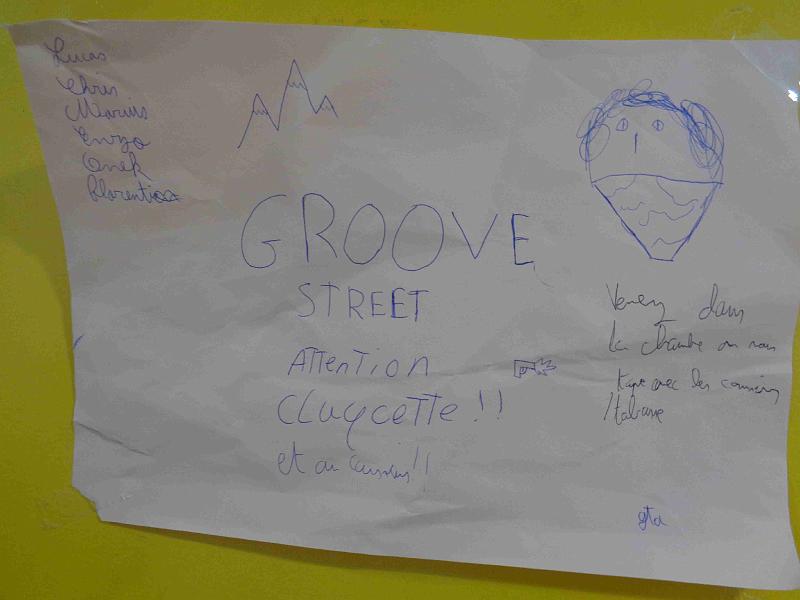 Lucas
Chris
Marius
Enzo
Onek
Florentin
GROOVE
STREET
Attention
CLUQCETTE !!
et au cuissins !!
Venez dans
la chambre on vous
tape avec les coussins
Italienne
gta